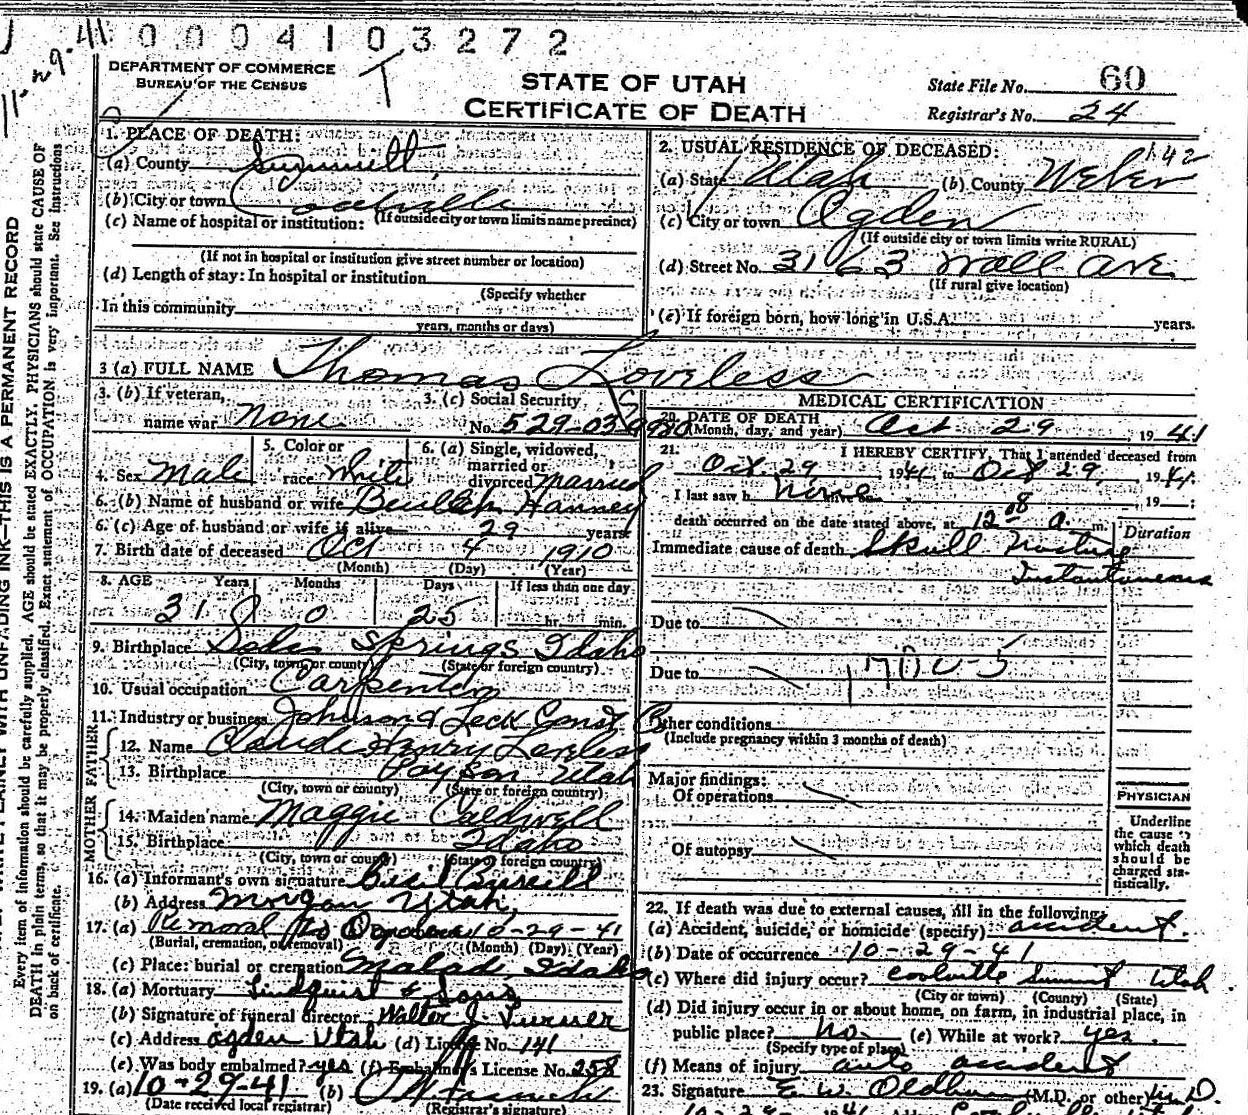 0004103272
DEPARTMENT OF COMMERCE
BUREAU OF THE CENSUS
STATE OF UTAH
CERTIFICATE OF DEATH
State File No. 60
Registrar's No. 24
1. PLACE OF DEATH:
(a) County Summit
(b) City or town Coalville
(If outside city or town limits name precinct)
(c) Name of hospital or institution:
(If not in hospital or institution give street number or location)
(d) Length of stay: In hospital or institution
(Specify whether
In this community
years, months or days)
2. USUAL RESIDENCE OF DECEASED:
142
(a) State Utah (b) County Weber
(c) City or town Ogden
(If outside city or town limits write RURAL)
(d) Street No. 3163 Wall Ave
(If rural give location)
(e) If foreign born, how long in U.S.A. years.
3 (a) FULL NAME Thomas Loveless
3. (b) If veteran, name war None
3. (c) Social Security No. 529-03-
4. Sex Male
5. Color or race White
6. (a) Single, widowed, married or divorced Married
6. (b) Name of husband or wife Beulah
6. (c) Age of husband or wife if alive 29 years
7. Birth date of deceased Oct 4 1910
(Month) (Day) (Year)
8. AGE Years Months Days If less than one day
31 0 25 hr. min.
9. Birthplace Soda Springs Idaho
(City, town, or county) (State or foreign country)
10. Usual occupation Carpenter
11. Industry or business Const Co
FATHER
12. Name Claude Henry Loveless
13. Birthplace Payson Utah
(City, town or county) (State or foreign country)
MOTHER
14. Maiden name Maggie Caldwell
15. Birthplace Idaho
(City, town or county) (State or foreign country)
16. (a) Informant's own signature
(b) Address Morgan Utah
17. (a) Removal to 10-29-41
(Burial, cremation, or removal) (Month) (Day) (Year)
(c) Place: burial or cremation Malad, Idaho
18. (a) Mortuary Lindquist & Sons
(b) Signature of funeral director Walter J. Turner
(c) Address Ogden Utah (d) License No. 141
(e) Was body embalmed? yes (f) Embalmer's License No. 258
19. (a) 10-29-41 (b)
(Date received local registrar) (Registrar's signature)
MEDICAL CERTIFICATION
20. DATE OF DEATH
(Month, day, and year) Oct 29, 1941
21. I HEREBY CERTIFY, That I attended deceased from
Oct. 29 1941, to Oct 29, 1941.
I last saw h alive on , 19 ;
death occurred on the date stated above, at a. m.
Duration
Immediate cause of death Skull
Instantaneous
Due to
Due to
Other conditions
(Include pregnancy within 3 months of death)
Major findings:
Of operations
Of autopsy
PHYSICIAN
Underline
the cause to
which death
should be
charged sta-
tistically.
22. If death was due to external causes, fill in the following:
(a) Accident, suicide, or homicide (specify) accident.
(b) Date of occurrence 10-29-41
(c) Where did injury occur? Coalville Summit Utah
(City or town) (County) (State)
(d) Did injury occur in or about home, on farm, in industrial place, in
public place? no (e) While at work? yes.
(Specify type of place)
(f) Means of injury auto accident
23. Signature E. W. Oldham (M.D. or other) M.D.
THIS IS A PERMANENT RECORD
Every item of information should be carefully supplied. AGE should be stated EXACTLY. PHYSICIANS should state CAUSE OF
DEATH in plain terms, so that it may be properly classified. Exact statement of OCCUPATION is very important. See instructions
on back of certificate.